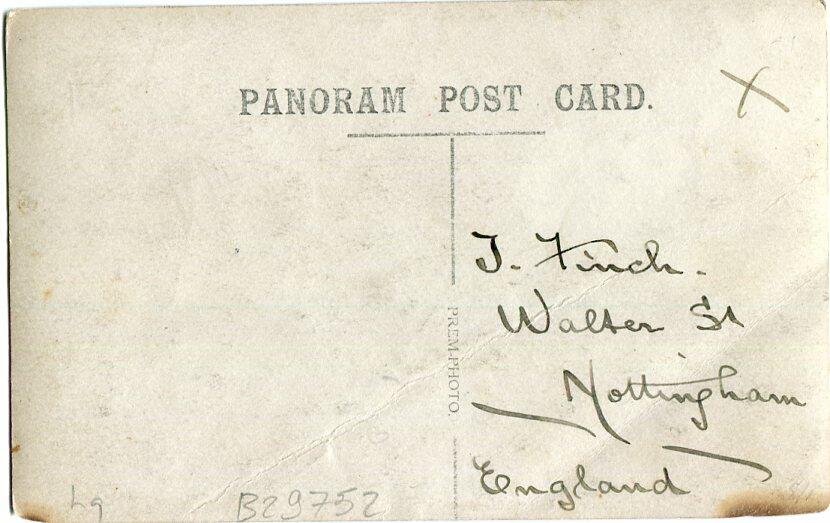 PANORAM POST CARD.
X
PREM-PHOTO.
J. Finch.
Walter St
Nottingham
England
B29752